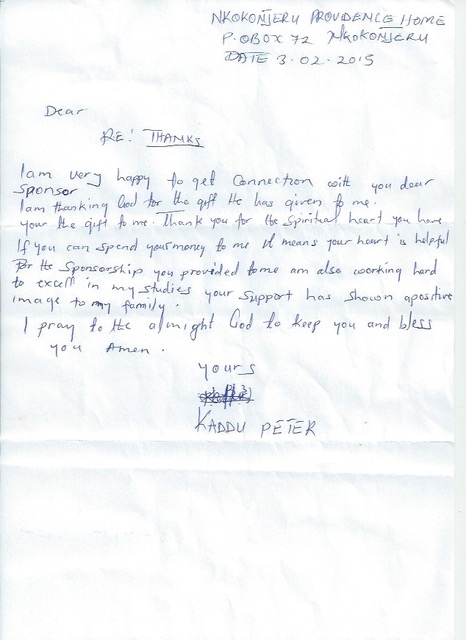 NKOKONJERU PROVIDENCE HOME
P.O BOX 72 NKOKONJERU
DATE 3.02.2015
Dear
RE: THANKS
I am very happy to get Connection with you dear
Sponsor
I am thanking God for the gift He has given to me.
your the gift to me. Thank you for the Spiritual heart you have
If you can spend your money to me it means your heart is helpful
For the Sponsorship you provided to me am also working hard
to excell in my studies your support has shown apositive
image to my family.
I pray to the almight God to keep you and bless
you Amen.
yours
KADDU PETER